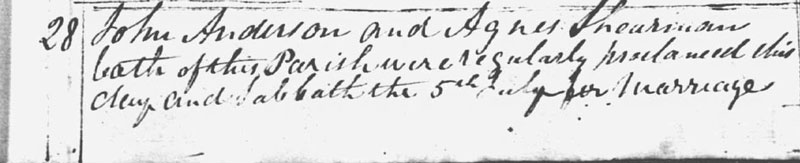 28 John Anderson and Agnes Shearman
both of this Parish were regularly proclamed this
day and Sabbath the 5th July for Marriage